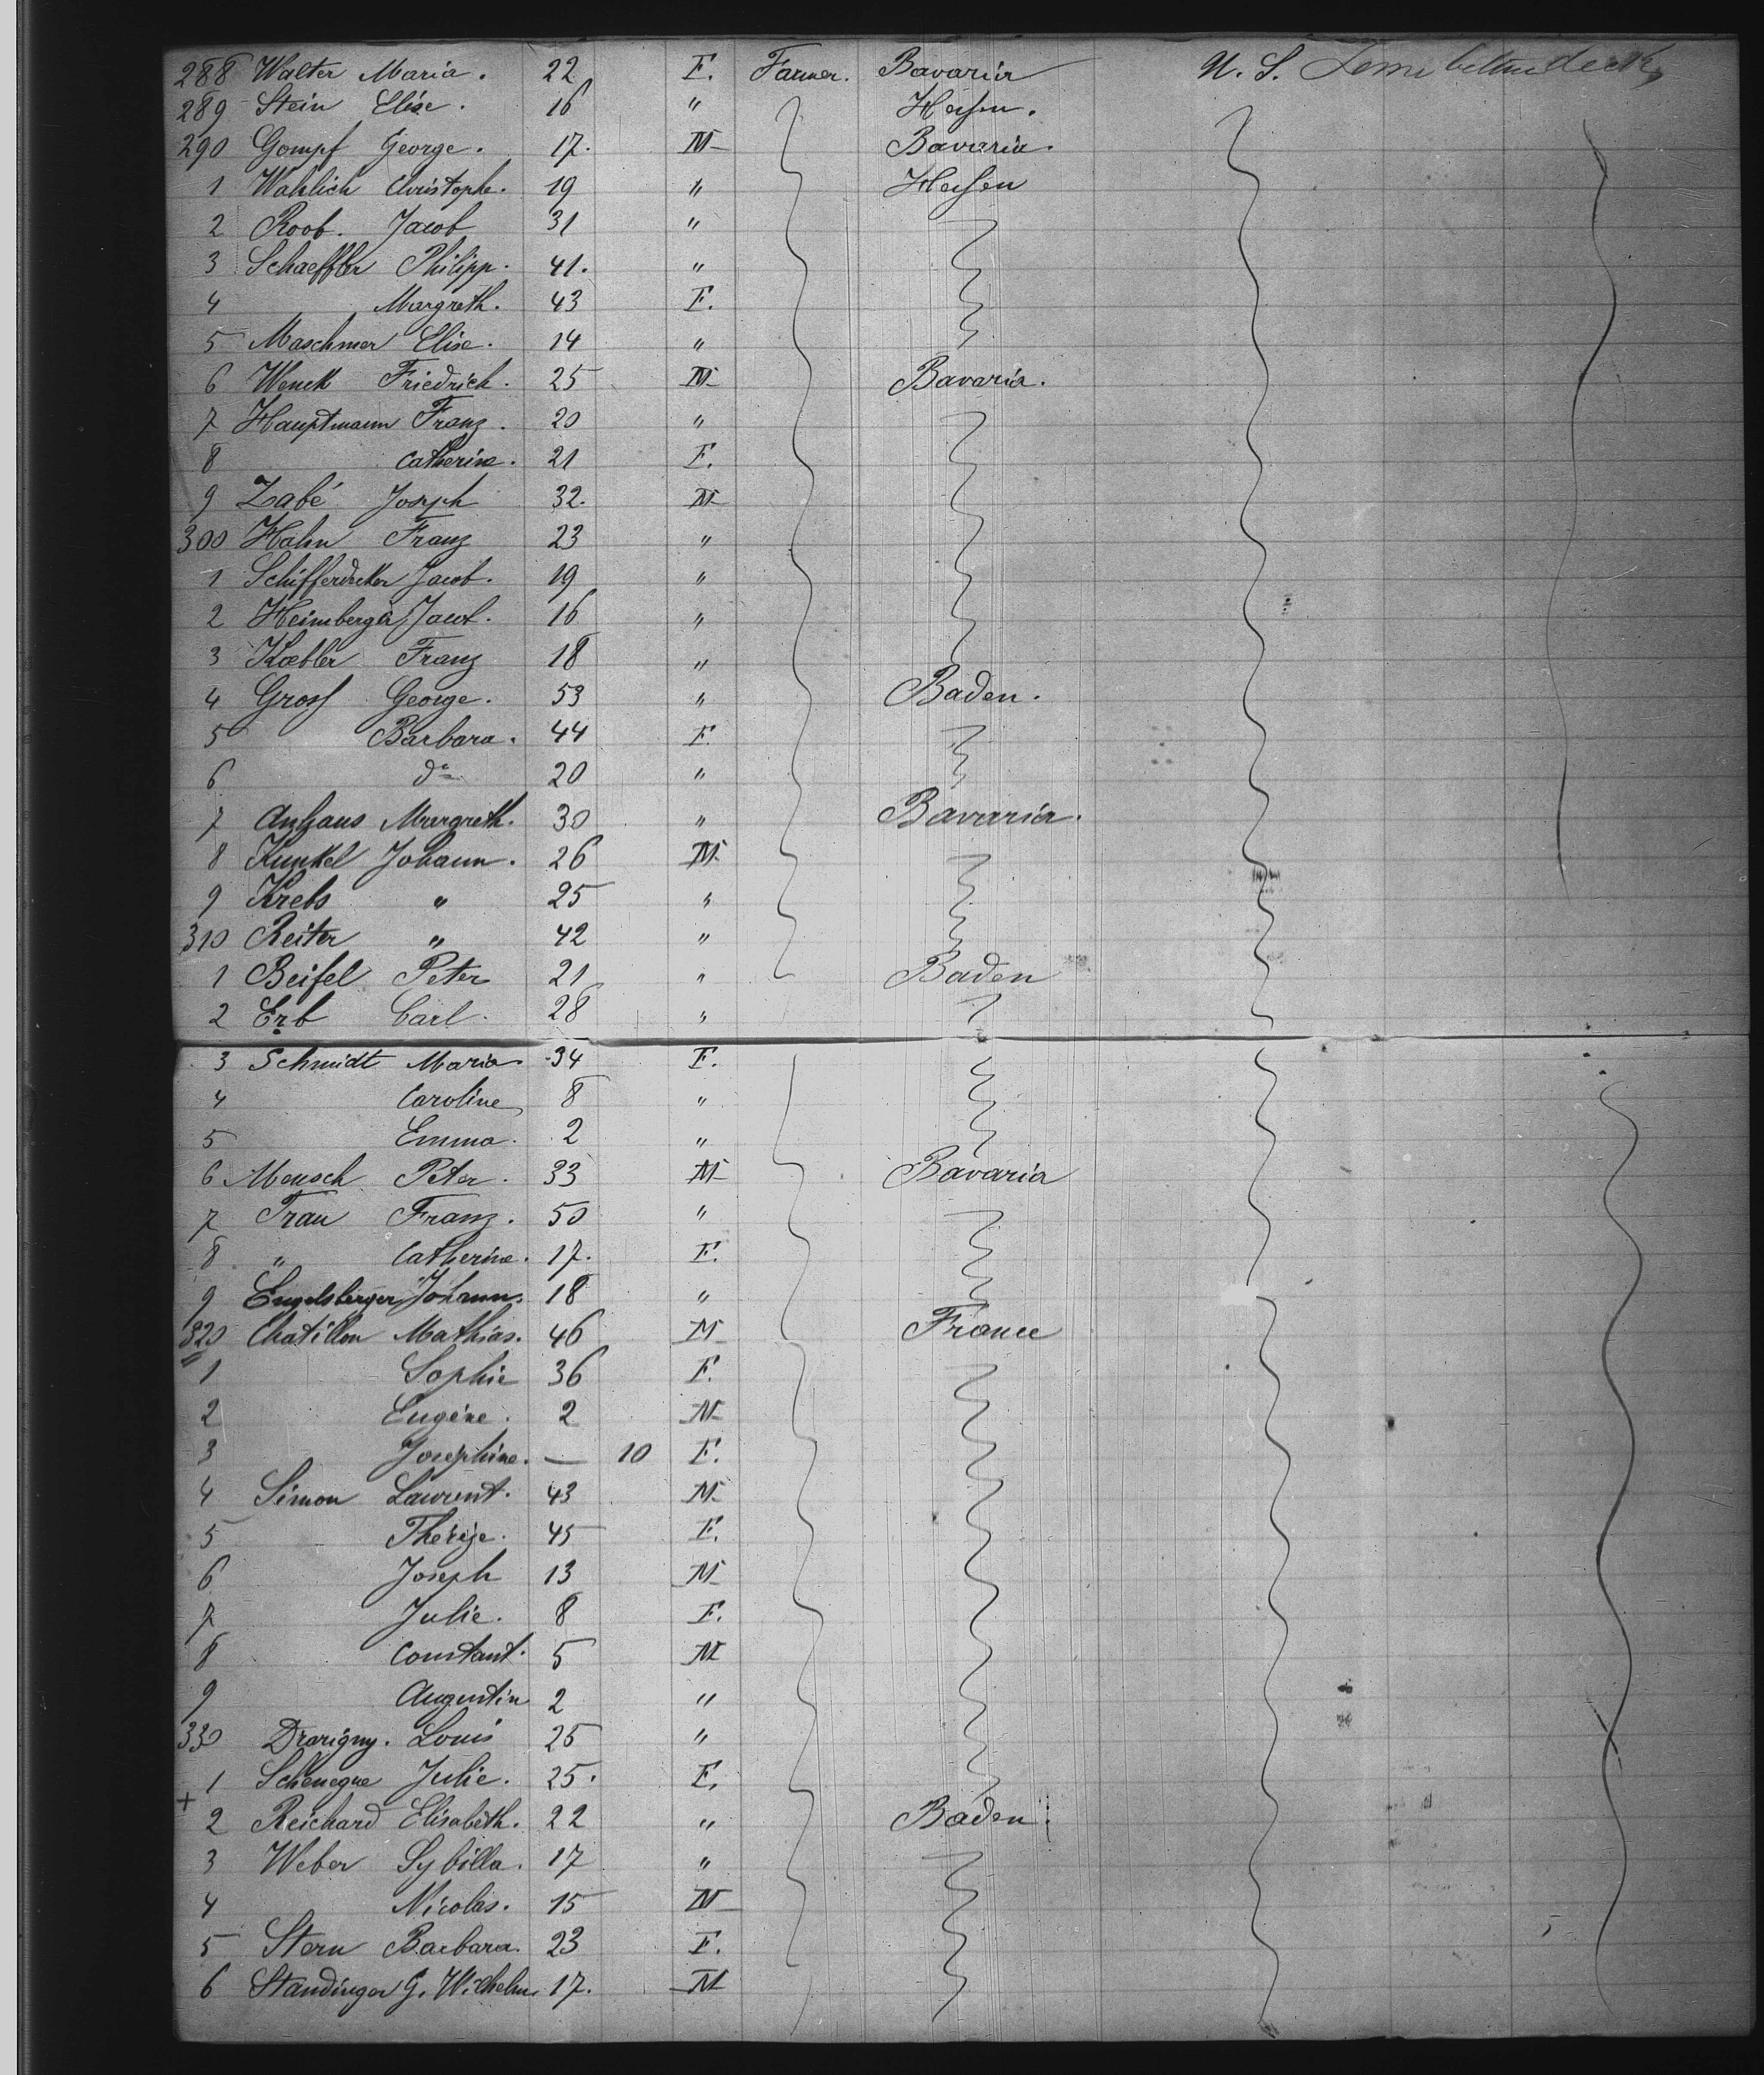 288 Walter Maria. 22 F. Farmer. Bavaria U. S.
289 Stein Elise. 16 " Hessen.
290 Gompf George. 17. M Bavaria.
1 Wahlich Christophe. 19 " Hessen
2 Roob. Jacob 31 "
3 Schaeffler Philipp. 41. "
4 Margreth. 43 F.
5 Maschmer Elise. 14 "
6 Wenck Friedrich. 25 M Bavaria.
7 Hauptmann Franz. 20 "
8 Catherine. 21 F.
9 Zabé Joseph 32. M
300 Hahn Franz 23 "
1 Schifferdecker Jacob. 19 "
2 Heimberger Jacob. 16 "
3 Koebler Franz 18 "
4 Gross George. 53 " Baden.
5 Barbara. 44 F.
6 do 20 "
7 Anhaus Margreth. 30 " Bavaria.
8 Kunkel Johann. 26 M
9 Krebs " 25 "
310 Reiter " 42 "
1 Beisel Peter 21 " Baden
2 Erb Carl. 28 "
3 Schmidt Maria. 34 F.
4 Caroline 8 "
5 Emma. 2 "
6 Mensch Peter. 33 M Bavaria
7 Trau Franz. 50 "
8 " Catherine. 17. F.
9 Engelsberger Johann. 18 "
320 Chatillon Mathias. 46 M France
1 Sophie 36 F.
2 Eugène. 2 M
3 Josephine. — 10 F.
4 Simon Laurent. 43 M
5 Thérèse. 45 F.
6 Joseph 13 M
7 Julie. 8 F.
8 Constant. 5 M
9 Augustin 2 "
330 Louis 25 "
1 Julie. 25. F.
+
2 Reichard Elisabeth. 22 " Baden.
3 Weber Sybilla. 17 "
4 Nicolas. 15 M
5 Stern Barbara. 23 F.
6 Standinger G. Wilhelm. 17. M